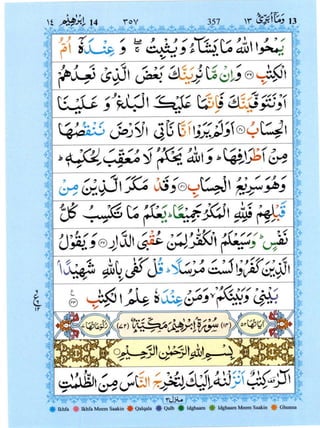 ابرٰهيم ١٤ 14 ٣٥٧ 357 وما ابرئ ١٣ 13
يَمْحُوا اللّٰهُ مَا يَشَآءُ وَيُثْبِتُ ۖ وَعِنْدَهٗٓ اُمُّ
الْكِتٰبِ ﴿٣٩﴾ وَاِنْ مَّا نُرِيَنَّكَ بَعْضَ الَّذِيْ نَعِدُهُمْ
اَوْ نَتَوَفَّيَنَّكَ فَاِنَّمَا عَلَيْكَ الْبَلٰغُ وَعَلَيْنَا
الْحِسَابُ ﴿٤٠﴾ اَوَلَمْ يَرَوْا اَنَّا نَأْتِي الْاَرْضَ نَنْقُصُهَا
مِنْ اَطْرَافِهَا ؕ وَاللّٰهُ يَحْكُمُ لَا مُعَقِّبَ لِحُكْمِهٖ ؕ
وَهُوَ سَرِيْعُ الْحِسَابِ ﴿٤١﴾ وَقَدْ مَكَرَ الَّذِيْنَ مِنْ
قَبْلِهِمْ فَلِلّٰهِ الْمَكْرُ جَمِيْعًا ؕ يَعْلَمُ مَا تَكْسِبُ كُلُّ
نَفْسٍ ؕ وَسَيَعْلَمُ الْكُفّٰرُ لِمَنْ عُقْبَى الدَّارِ ﴿٤٢﴾ وَيَقُوْلُ
الَّذِيْنَ كَفَرُوْا لَسْتَ مُرْسَلًا ؕ قُلْ كَفٰى بِاللّٰهِ شَهِيْدًۢا
بَيْنِيْ وَبَيْنَكُمْ ۙ وَمَنْ عِنْدَهٗ عِلْمُ الْكِتٰبِ ﴿٤٣﴾
اٰيَاتُهَا ٥٢ (١٤) سُوْرَةُ اِبْرٰهِيْمَ مَكِّيَّةٌ (٧٢) رُكُوْعَاتُهَا ٧
بِسْمِ اللّٰهِ الرَّحْمٰنِ الرَّحِيْمِ
الٓرٰ ۟ كِتٰبٌ اَنْزَلْنٰهُ اِلَيْكَ لِتُخْرِجَ النَّاسَ مِنَ الظُّلُمٰتِ
منزل ٣
Ikhfa Ikhfa Meem Saakin Qalqala Qalb Idghaam Idghaam Meem Saakin Ghunna